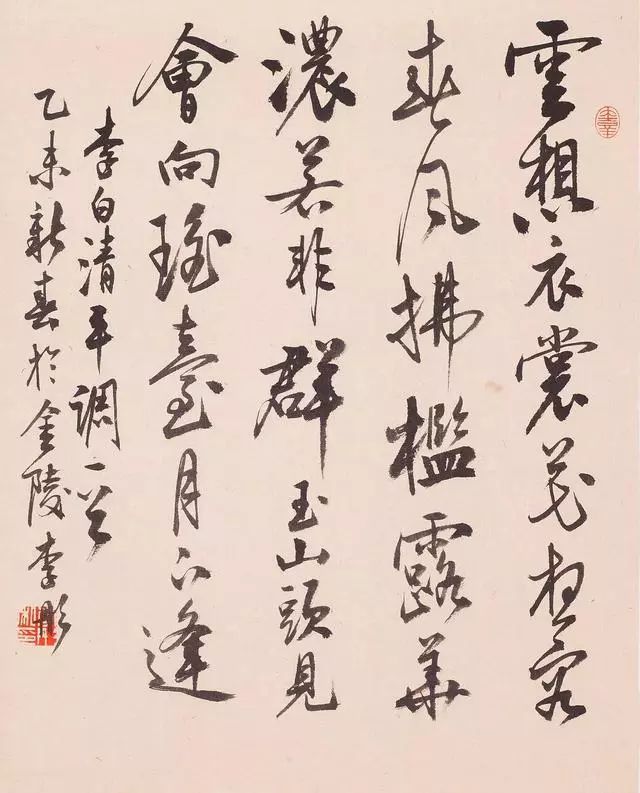 雲想衣裳花想容
春風拂檻露華
濃若非群玉山頭見
會向瑤臺月下逢
李白清平調一首
乙未新春於金陵李彤